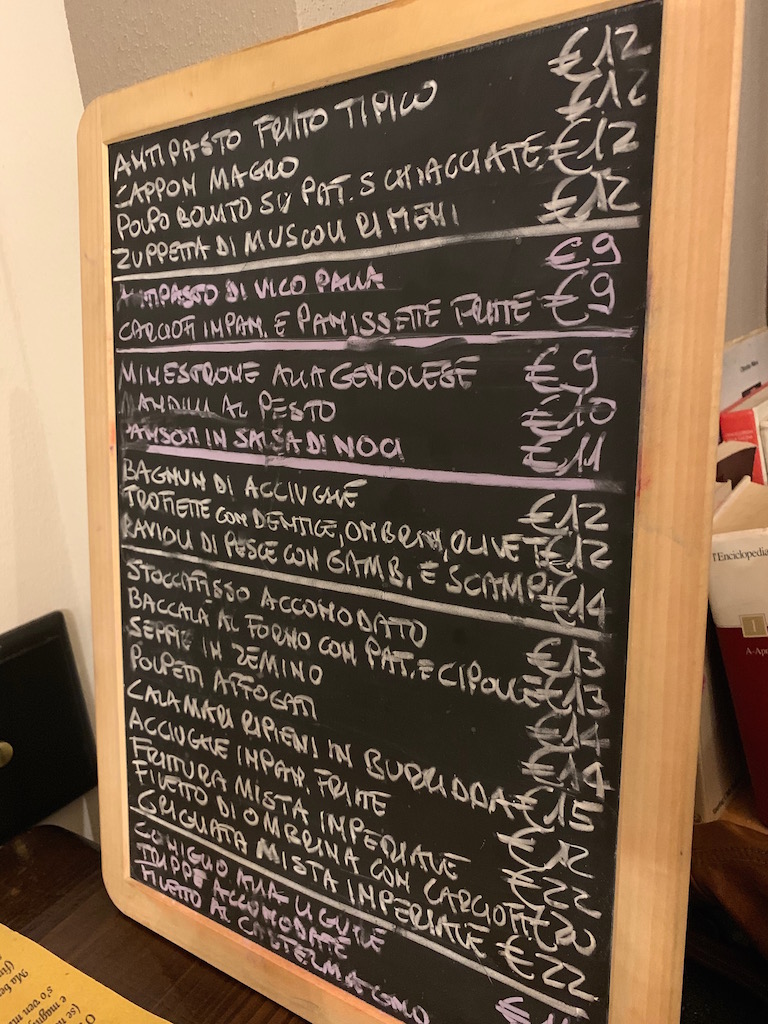 ANTIPASTO FRITTO TIPICO €12
CAPPON MAGRO €12
POLPO BOLLITO SU PAT. SCHIACCIATE €12
ZUPPETTA DI MUSCOLI RIPIENI €12
ANTIPASTO DI VICO PALLA €9
CARCIOFI IMPAN. E PANISSETTE FRITTE €9
MINESTRONE ALLA GENOVESE €9
MANDILLI AL PESTO €10
PANSOTI IN SALSA DI NOCI €11
BAGNUN DI ACCIUGHE €12
TROFIETTE CON DENTICE, OMBRINA, OLIVE €12
RAVIOLI DI PESCE CON GAMB. E SCAMPI €14
STOCCAFISSO ACCOMODATO €13
BACCALÀ AL FORNO CON PAT. E CIPOLLE €13
SEPPIE IN ZEMINO €14
POLPETTI AFFOGATI €14
CALAMARI RIPIENI IN BURIDDA €15
ACCIUGHE IMPAN. FRITTE €12
FRITTURA MISTA IMPERIALE €22
FILETTO DI OMBRINA CON CARCIOFI €20
GRIGLIATA MISTA IMPERIALE €22
CONIGLIO ALLA LIGURE
TRIPPE ACCOMODATE
FILETTO AL CASTELMAGNO
l'Enciclopedia
1